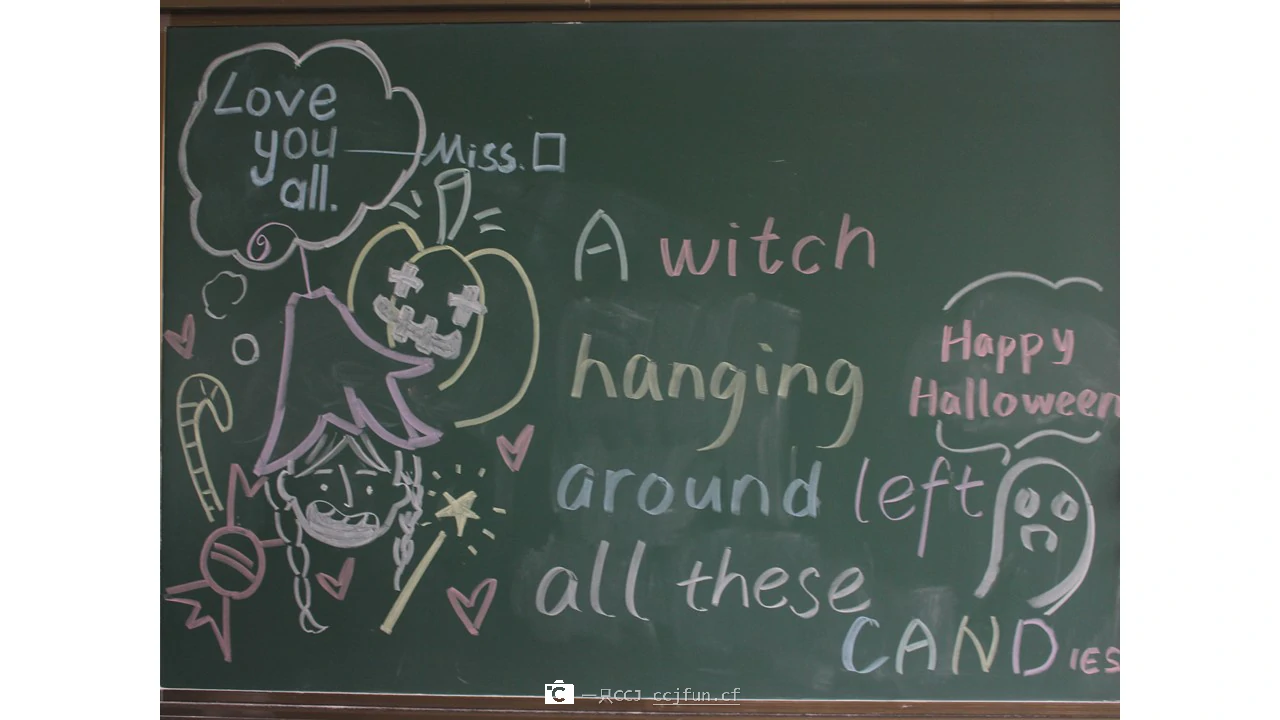 Love
you
all.
Miss. □
A witch
hanging
around left
all these
CANDIES
Happy
Halloween
一只CCJ ccjfun.cf